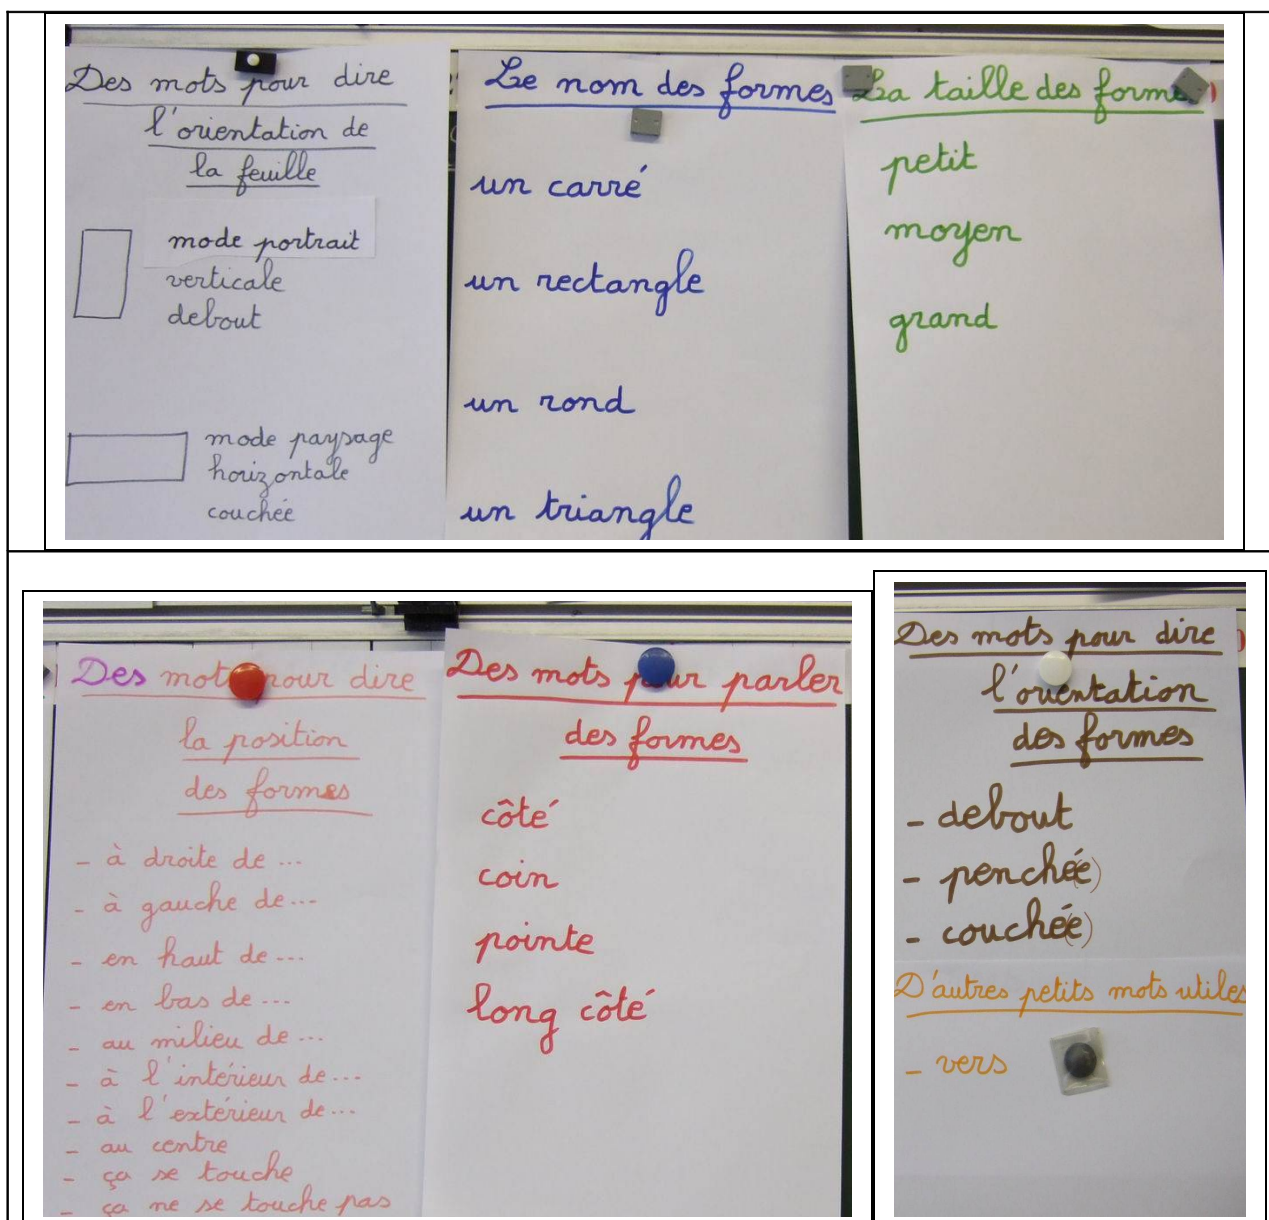 Des mots pour dire
l'orientation de
la feuille
mode portrait
verticale
debout
mode paysage
horizontale
couchée
Le nom des formes
un carré
un rectangle
un rond
un triangle
La taille des formes
petit
moyen
grand
Des mots pour dire
la position
des formes
- à droite de ...
- à gauche de ...
- en haut de ...
- en bas de ...
- au milieu de ...
- à l'intérieur de ...
- à l'extérieur de ...
- au centre
- ça se touche
- ça ne se touche pas
Des mots pour parler
des formes
côté
coin
pointe
long côté
Des mots pour dire
l'orientation
des formes
- debout
- penché(e)
- couché(e)
D'autres petits mots utiles
- vers